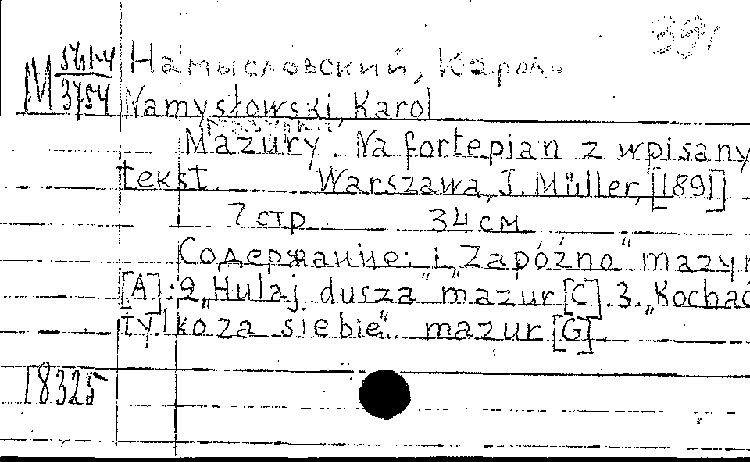 391
М 57.1-4 Намысловский, Кароль
3754 Namysłowski, Karol
Mazury. Na fortepian z wpisany
tekst. Warszawa, J. Müller, [1891]
7 стр. 34 см.
Содержание: 1. „Zapóźno" mazur
[A]. 2. „Hulaj dusza" mazur [C]. 3. „Kochać
tylko za siebie". mazur [G].
18325